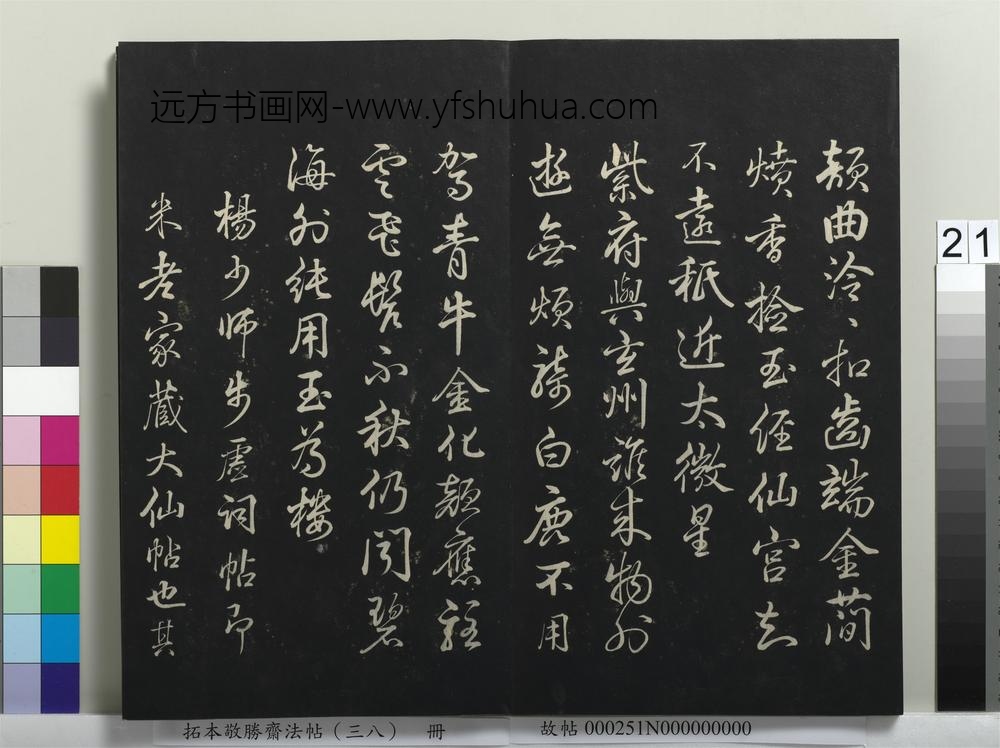 曲泠泠扣齒端金簡
燌香撿玉經仙宮知
不遠秖近太微星
紫府與玄州誰来物外
遊無煩騎白鹿不用
駕青牛金化顏應駐
雲飛鬢不秋仍聞碧
海外純用玉為樓
楊少師步虛詞帖即
米老家藏大仙帖也其
远方书画网-www.yfshuhua.com
21
拓本敬勝齋法帖（三八） 冊
故帖 000251N000000000